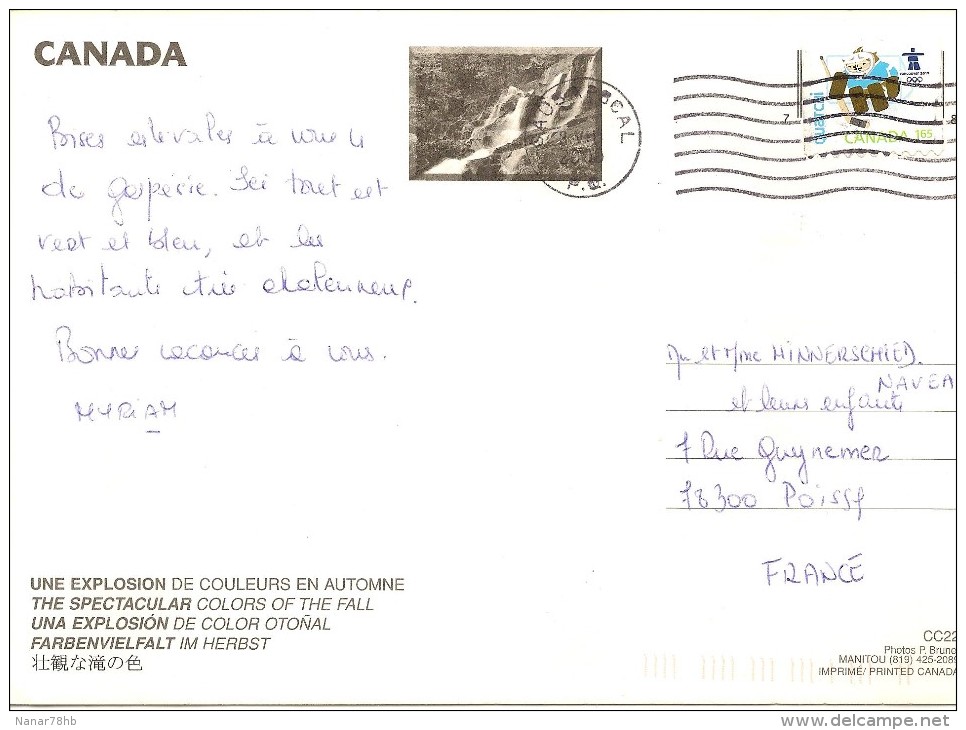 CANADA
Bises estivales à vous 4
de gaspésie. Ici tout est
vert et bleu, et les
habitants très chaleureux.
Bonnes vacances à vous.
MYRIAM
UNE EXPLOSION DE COULEURS EN AUTOMNE
THE SPECTACULAR COLORS OF THE FALL
UNA EXPLOSIÓN DE COLOR OTOÑAL
FARBENVIELFALT IM HERBST
壮観な滝の色
P.Q.
quatchi
CANADA 165
VANCOUVER 2010
Mr et Mme HINNERSCHIED.
NAVEA
et leurs enfants
7 Rue Guynemer
78300 Poissy
FRANCE
CC22
Photos P. Bruno
MANITOU (819) 425-2089
IMPRIMÉ/ PRINTED CANADA
Nanar78hb
delcampe.net